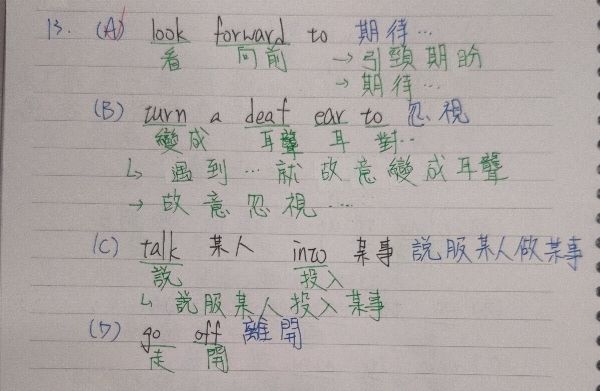 13. (A) look forward to 期待…
看 向前 → 引頸期盼
→ 期待…
(B) turn a deaf ear to 忽視
變成 耳聾 耳 對…
↳ 遇到…就故意變成耳聾
→ 故意忽視……
(C) talk 某人 into 某事 說服某人做某事
說 投入
↳ 說服某人投入某事
(D) go off 離開
走 開